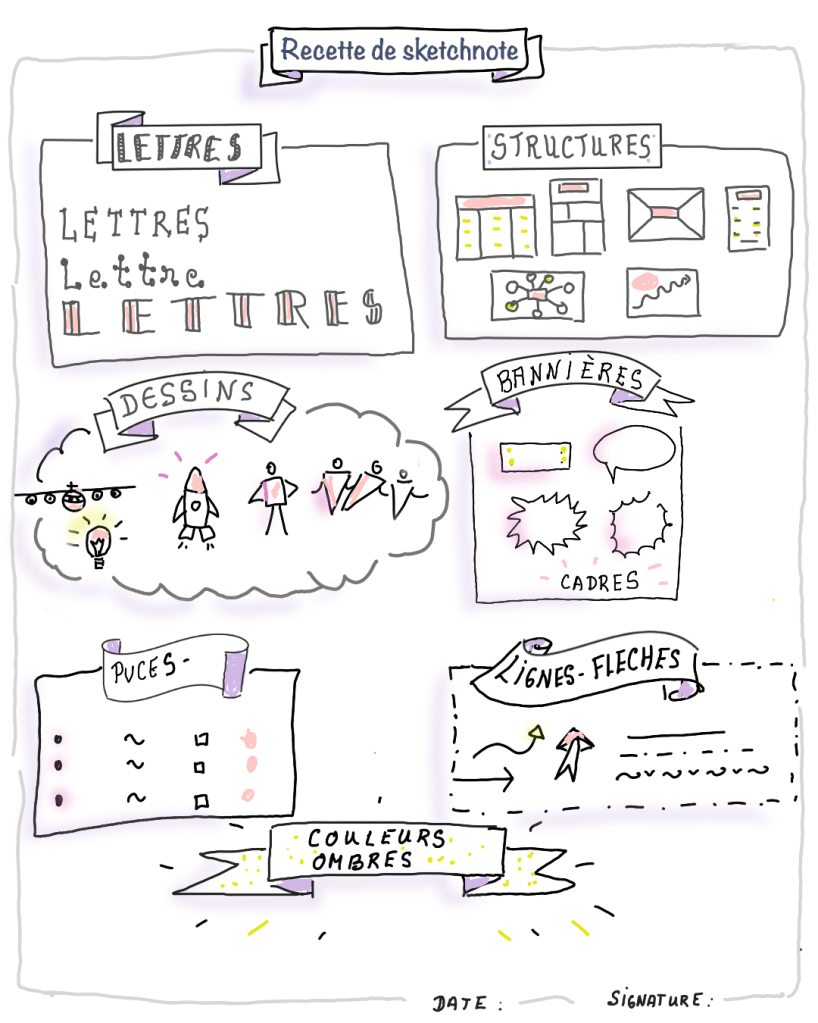 Recette de sketchnote
LETTRES
LETTRES
Lettre
LETTRES
STRUCTURES
DESSINS
BANNIÈRES
CADRES
PUCES-
LIGNES-FLECHES
COULEURS
OMBRES
DATE :
SIGNATURE :